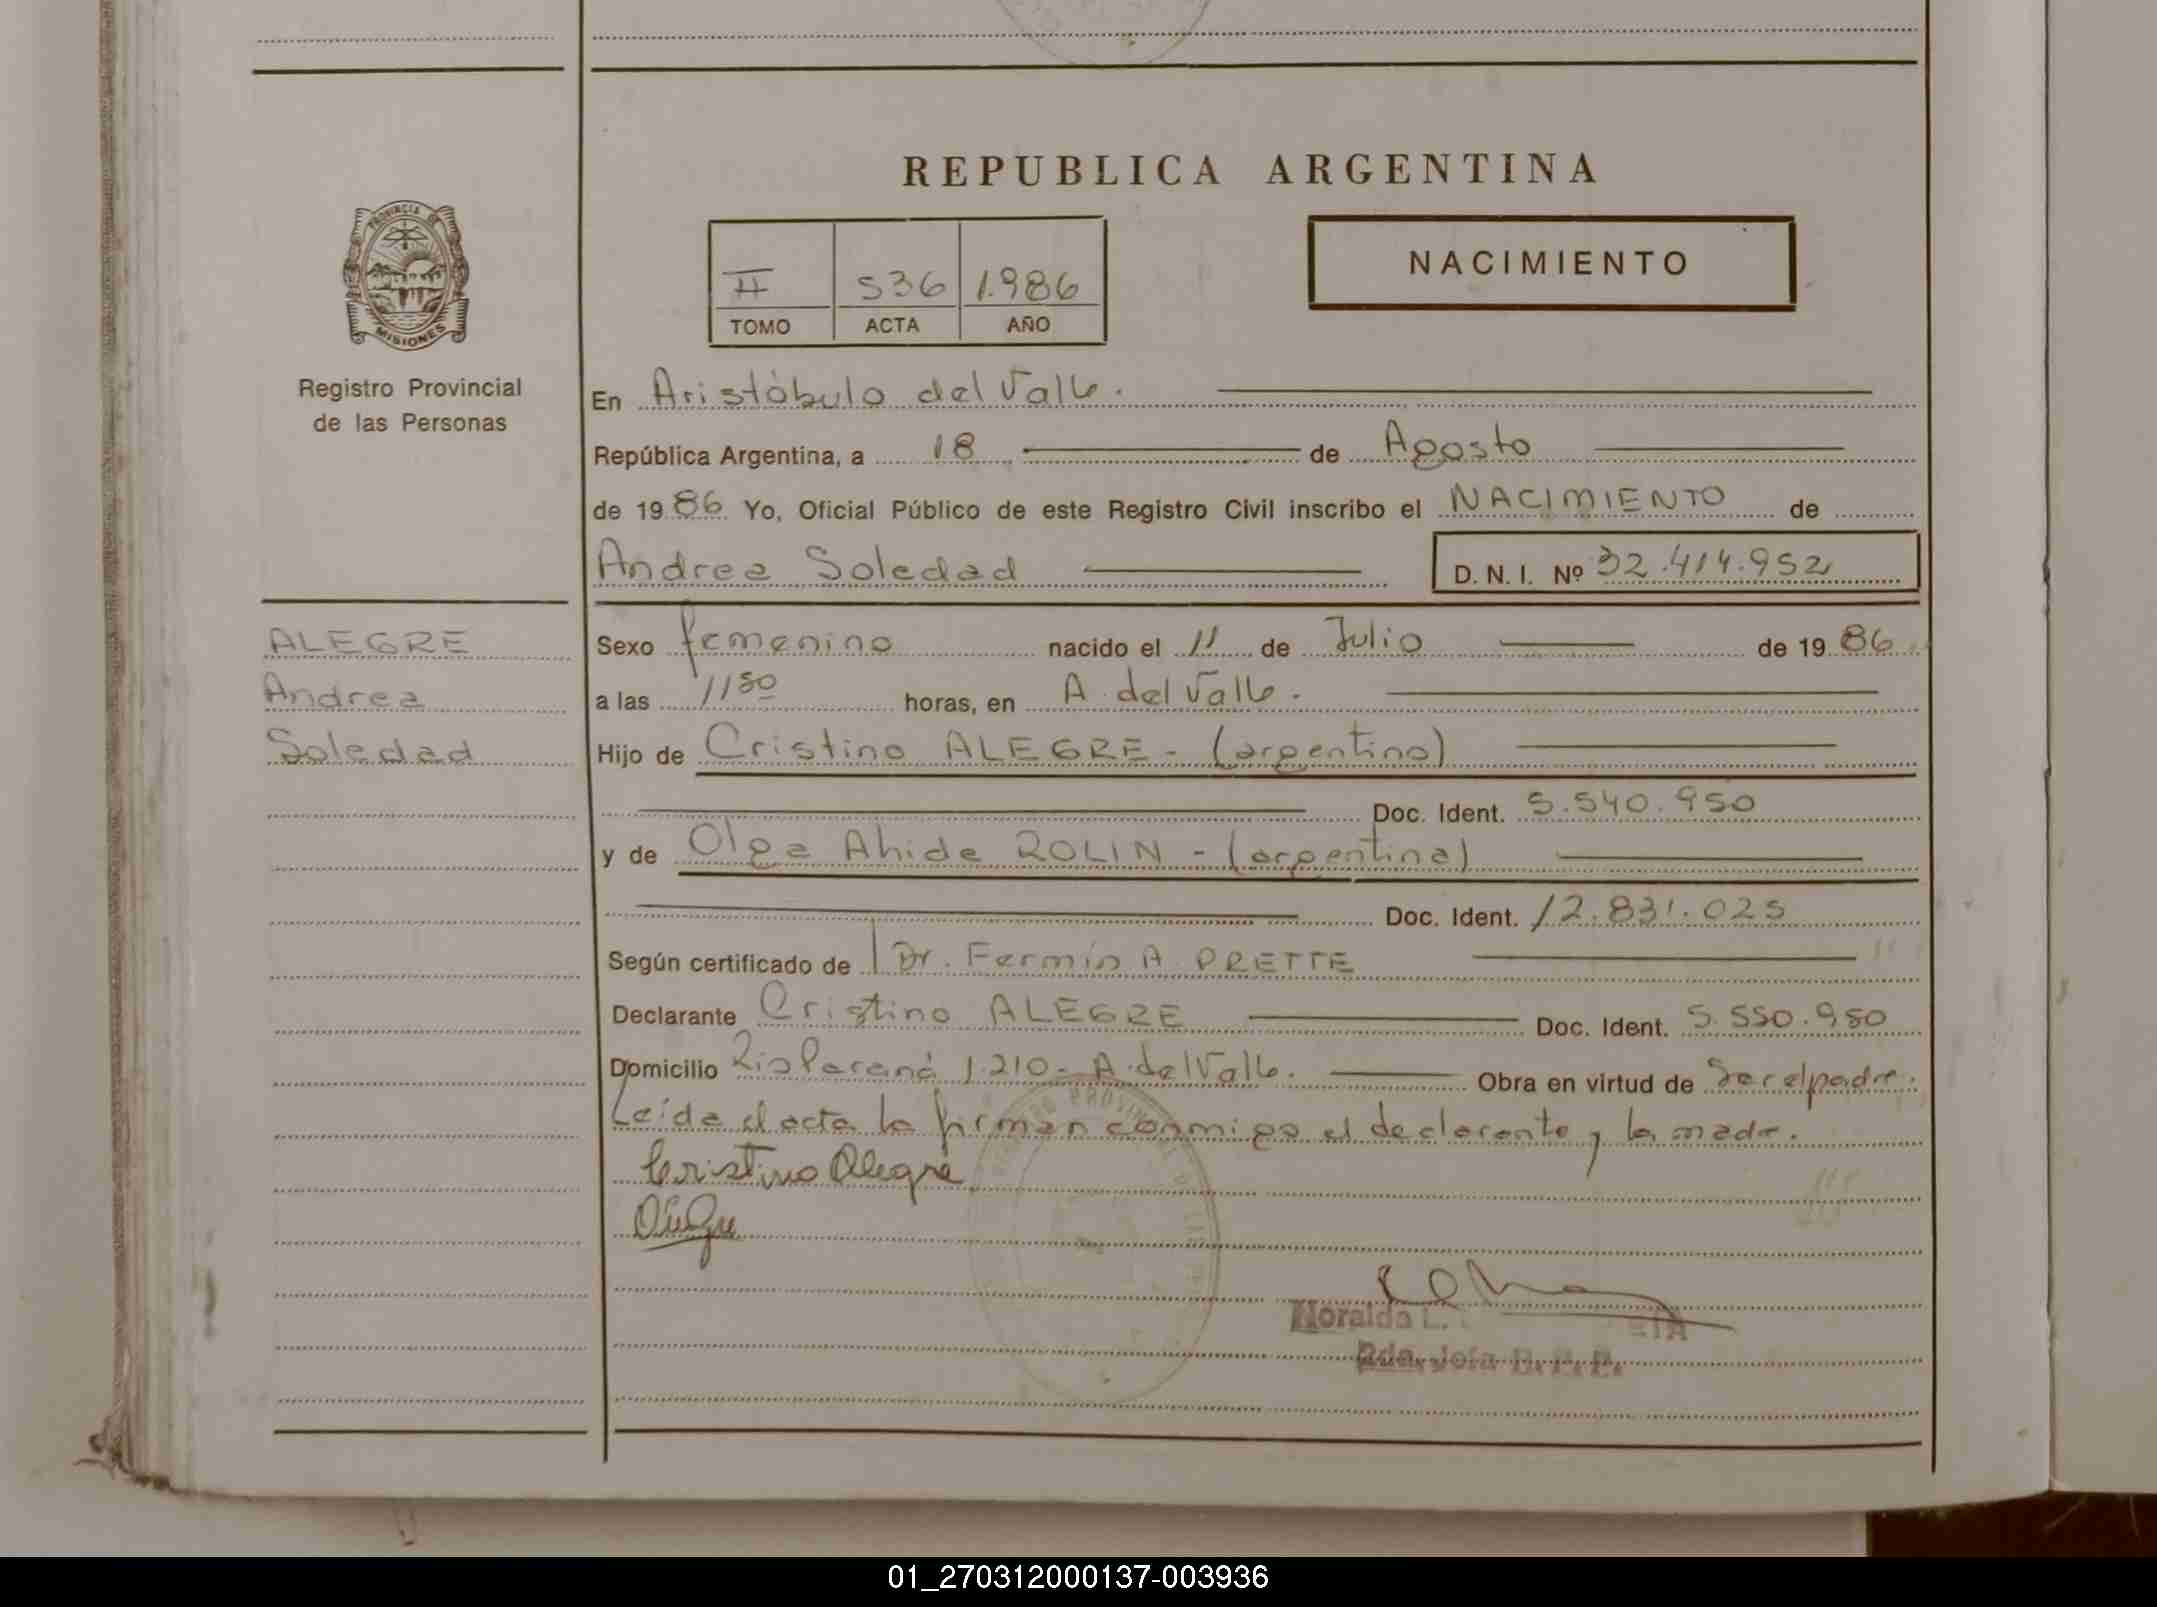 REPUBLICA ARGENTINA
PROVINCIA DE
MISIONES
Registro Provincial
de las Personas
II 536 1.986
TOMO ACTA AÑO
NACIMIENTO
En Aristóbulo del Valle.
República Argentina, a 18 de Agosto
de 1986 Yo, Oficial Público de este Registro Civil inscribo el NACIMIENTO de
Andrea Soledad D. N. I. Nº 32.414.952
ALEGRE
Andrea
Soledad
Sexo femenino nacido el 11 de Julio de 1986
a las 11 50 horas, en A. del Valle.
Hijo de Cristino ALEGRE - (argentino)
Doc. Ident. 5.540.950
y de Olga Ahide ROLIN - (argentina)
Doc. Ident. 12.831.025
Según certificado de Dr. Fermín A PRETTE
Declarante Cristino ALEGRE Doc. Ident. 5.550.950
Domicilio Río Paraná 1.210 - A. del Valle. Obra en virtud de Ser el padre.
Leída el acta la firman conmigo el declarante y la madre.
Cristino Alegre
Noralda L.
R. P. P.
01_270312000137-003936